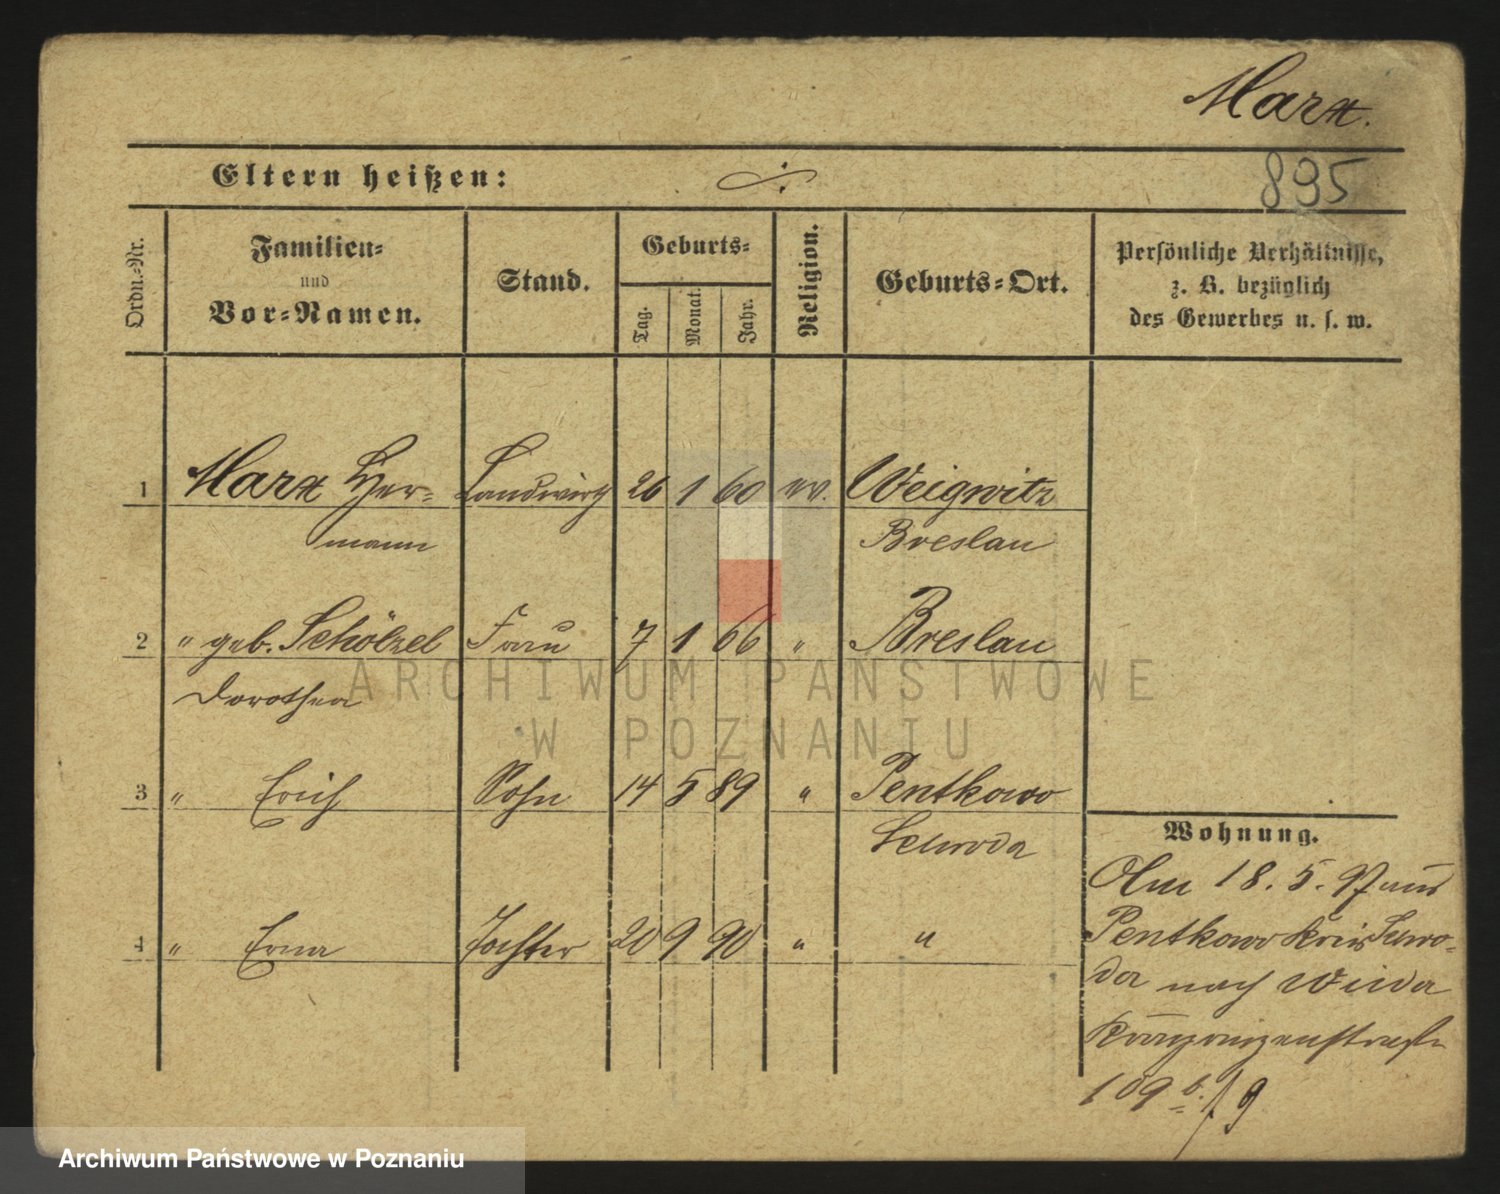 Marx.
Eltern heißen:
895
Ordn.-Nr.
Familien-
und
Vor-Namen.
Stand.
Geburts-
Tag.
Monat.
Jahr.
Religion.
Geburts-Ort.
Persönliche Verhältnisse,
z. B. bezüglich
des Gewerbes u. s. w.
1 Marx Her- Landwirth 26 1 60 ev. Weigwitz
mann Breslau
2 " geb. Schölzel Frau 7 1 66 " Breslau
Dorothea
3 " Erich Sohn 14 5 89 " Pentkowo
Schroda
4 " Erna Tochter 20 9 90 " "
Wohnung.
Am 18. 5. 97 aus
Pentkowo Kreis Schro-
da nach Wilda
Kronprinzenstraße
109 b. / 9
ARCHIWUM PAŃSTWOWE
W POZNANIU
Archiwum Państwowe w Poznaniu